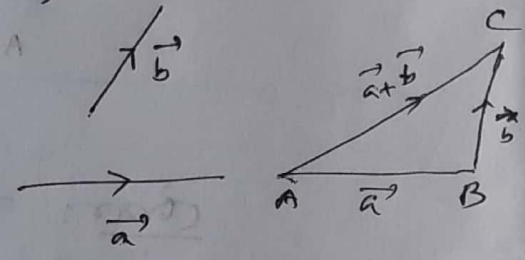 b⃗
a⃗
C
a⃗+b⃗
b⃗
A
a⃗
B